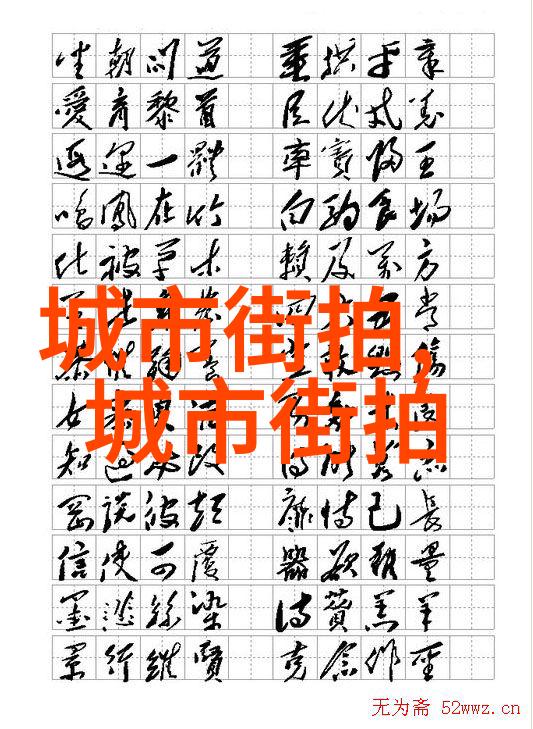 坐朝问道 垂拱平章
愛育黎首 臣伏戎羌
遐迩一體 率賓歸王
鳴鳳在竹 白駒食場
化被草木 賴及万方
城市街拍,
城市街拍
知過必改 得能莫忘
罔談彼短 靡恃己長
信使可覆 器欲難量
墨悲絲染 詩贊羔羊
景行維賢 克念作聖
无为斋 52wwz.cn